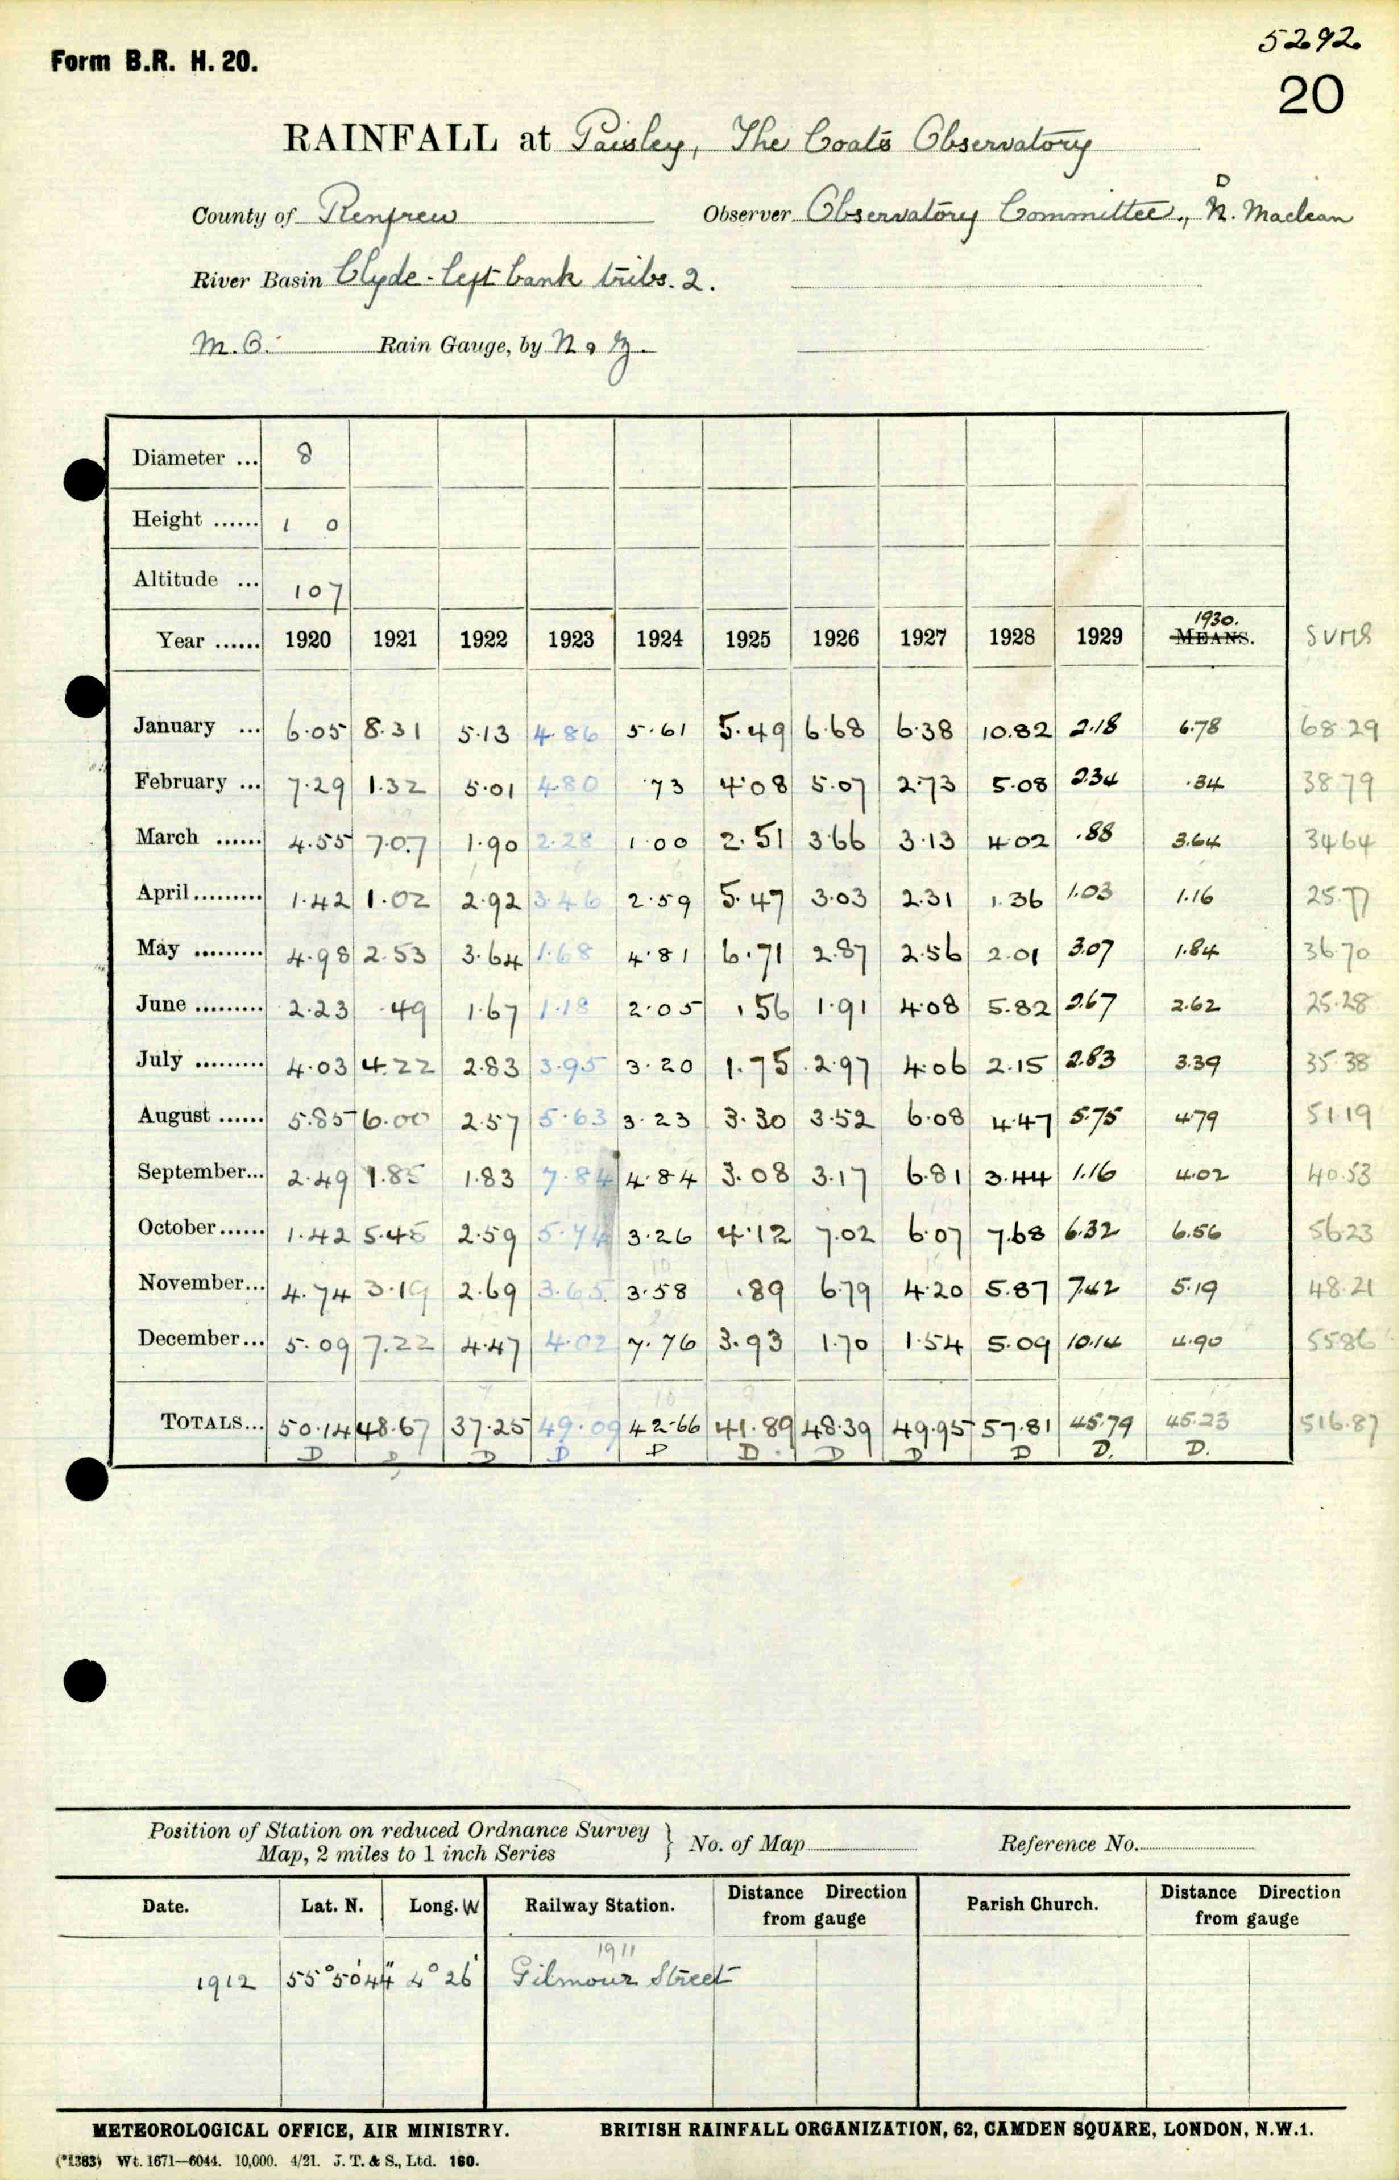 5292
Form B.R. H. 20.
20
RAINFALL at Paisley, The Coats Observatory
County of Renfrew Observer Observatory Committee., D N. Maclean
River Basin Clyde - left bank tribs. 2.
M.O. Rain Gauge, by N & Z.
Diameter ... 8
Height ...... 1 0
Altitude ... 107
1930.
Year ...... 1920 1921 1922 1923 1924 1925 1926 1927 1928 1929 MEANS. SUMS
January ... 6.05 8.31 5.13 4.86 5.61 5.49 6.68 6.38 10.82 2.18 6.78 68.29
February ... 7.29 1.32 5.01 4.80 .73 4.08 5.07 2.73 5.08 2.34 .34 38.79
March ...... 4.55 7.07 1.90 2.28 1.00 2.51 3.66 3.13 4.02 .88 3.64 34.64
April ......... 1.42 1.02 2.92 3.46 2.59 5.47 3.03 2.31 1.36 1.03 1.16 25.77
May ......... 4.98 2.53 3.64 1.68 4.81 6.71 2.87 2.56 2.01 3.07 1.84 36.70
June ......... 2.23 .49 1.67 1.18 2.05 .56 1.91 4.08 5.82 2.67 2.62 25.28
July ......... 4.03 4.22 2.83 3.95 3.20 1.75 2.97 4.06 2.15 2.83 3.39 35.38
August ...... 5.85 6.00 2.57 5.63 3.23 3.30 3.52 6.08 4.47 5.75 4.79 51.19
September... 2.49 1.85 1.83 7.84 4.84 3.08 3.17 6.81 3.44 1.16 4.02 40.53
October ...... 1.42 5.45 2.59 5.74 3.26 4.12 7.02 6.07 7.68 6.32 6.56 56.23
November... 4.74 3.19 2.69 3.65 3.58 .89 6.79 4.20 5.87 7.42 5.19 48.21
December... 5.09 7.22 4.47 4.02 7.76 3.93 1.70 1.54 5.09 10.14 4.90 55.86
TOTALS... 50.14 48.67 37.25 49.09 42.66 41.89 48.39 49.95 57.81 45.79 45.23 516.87
D D D D D D D D D D. D.
Position of Station on reduced Ordnance Survey
Map, 2 miles to 1 inch Series } No. of Map Reference No.
Date. Lat. N. Long. W Railway Station. Distance Direction from gauge Parish Church. Distance Direction from gauge
1911
1912 55° 50' 44" 4° 26' Gilmour Street
METEOROLOGICAL OFFICE, AIR MINISTRY. BRITISH RAINFALL ORGANIZATION, 62, CAMDEN SQUARE, LONDON, N.W.1.
(*1383) Wt. 1671—6044. 10,000. 4/21. J. T. & S., Ltd. 160.